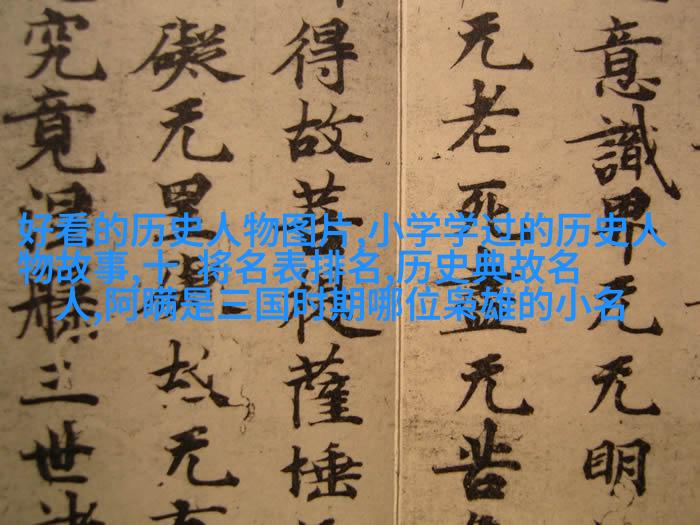 好看的历史人物图片,小学学过的历史人
物故事,十 将名表排名,历史典故名
人,阿瞒是三国时期哪位枭雄的小名
意識界无无明
无老死盡无苦
得故菩提薩埵
礙无罣礙故无有
究竟涅槃三世諸